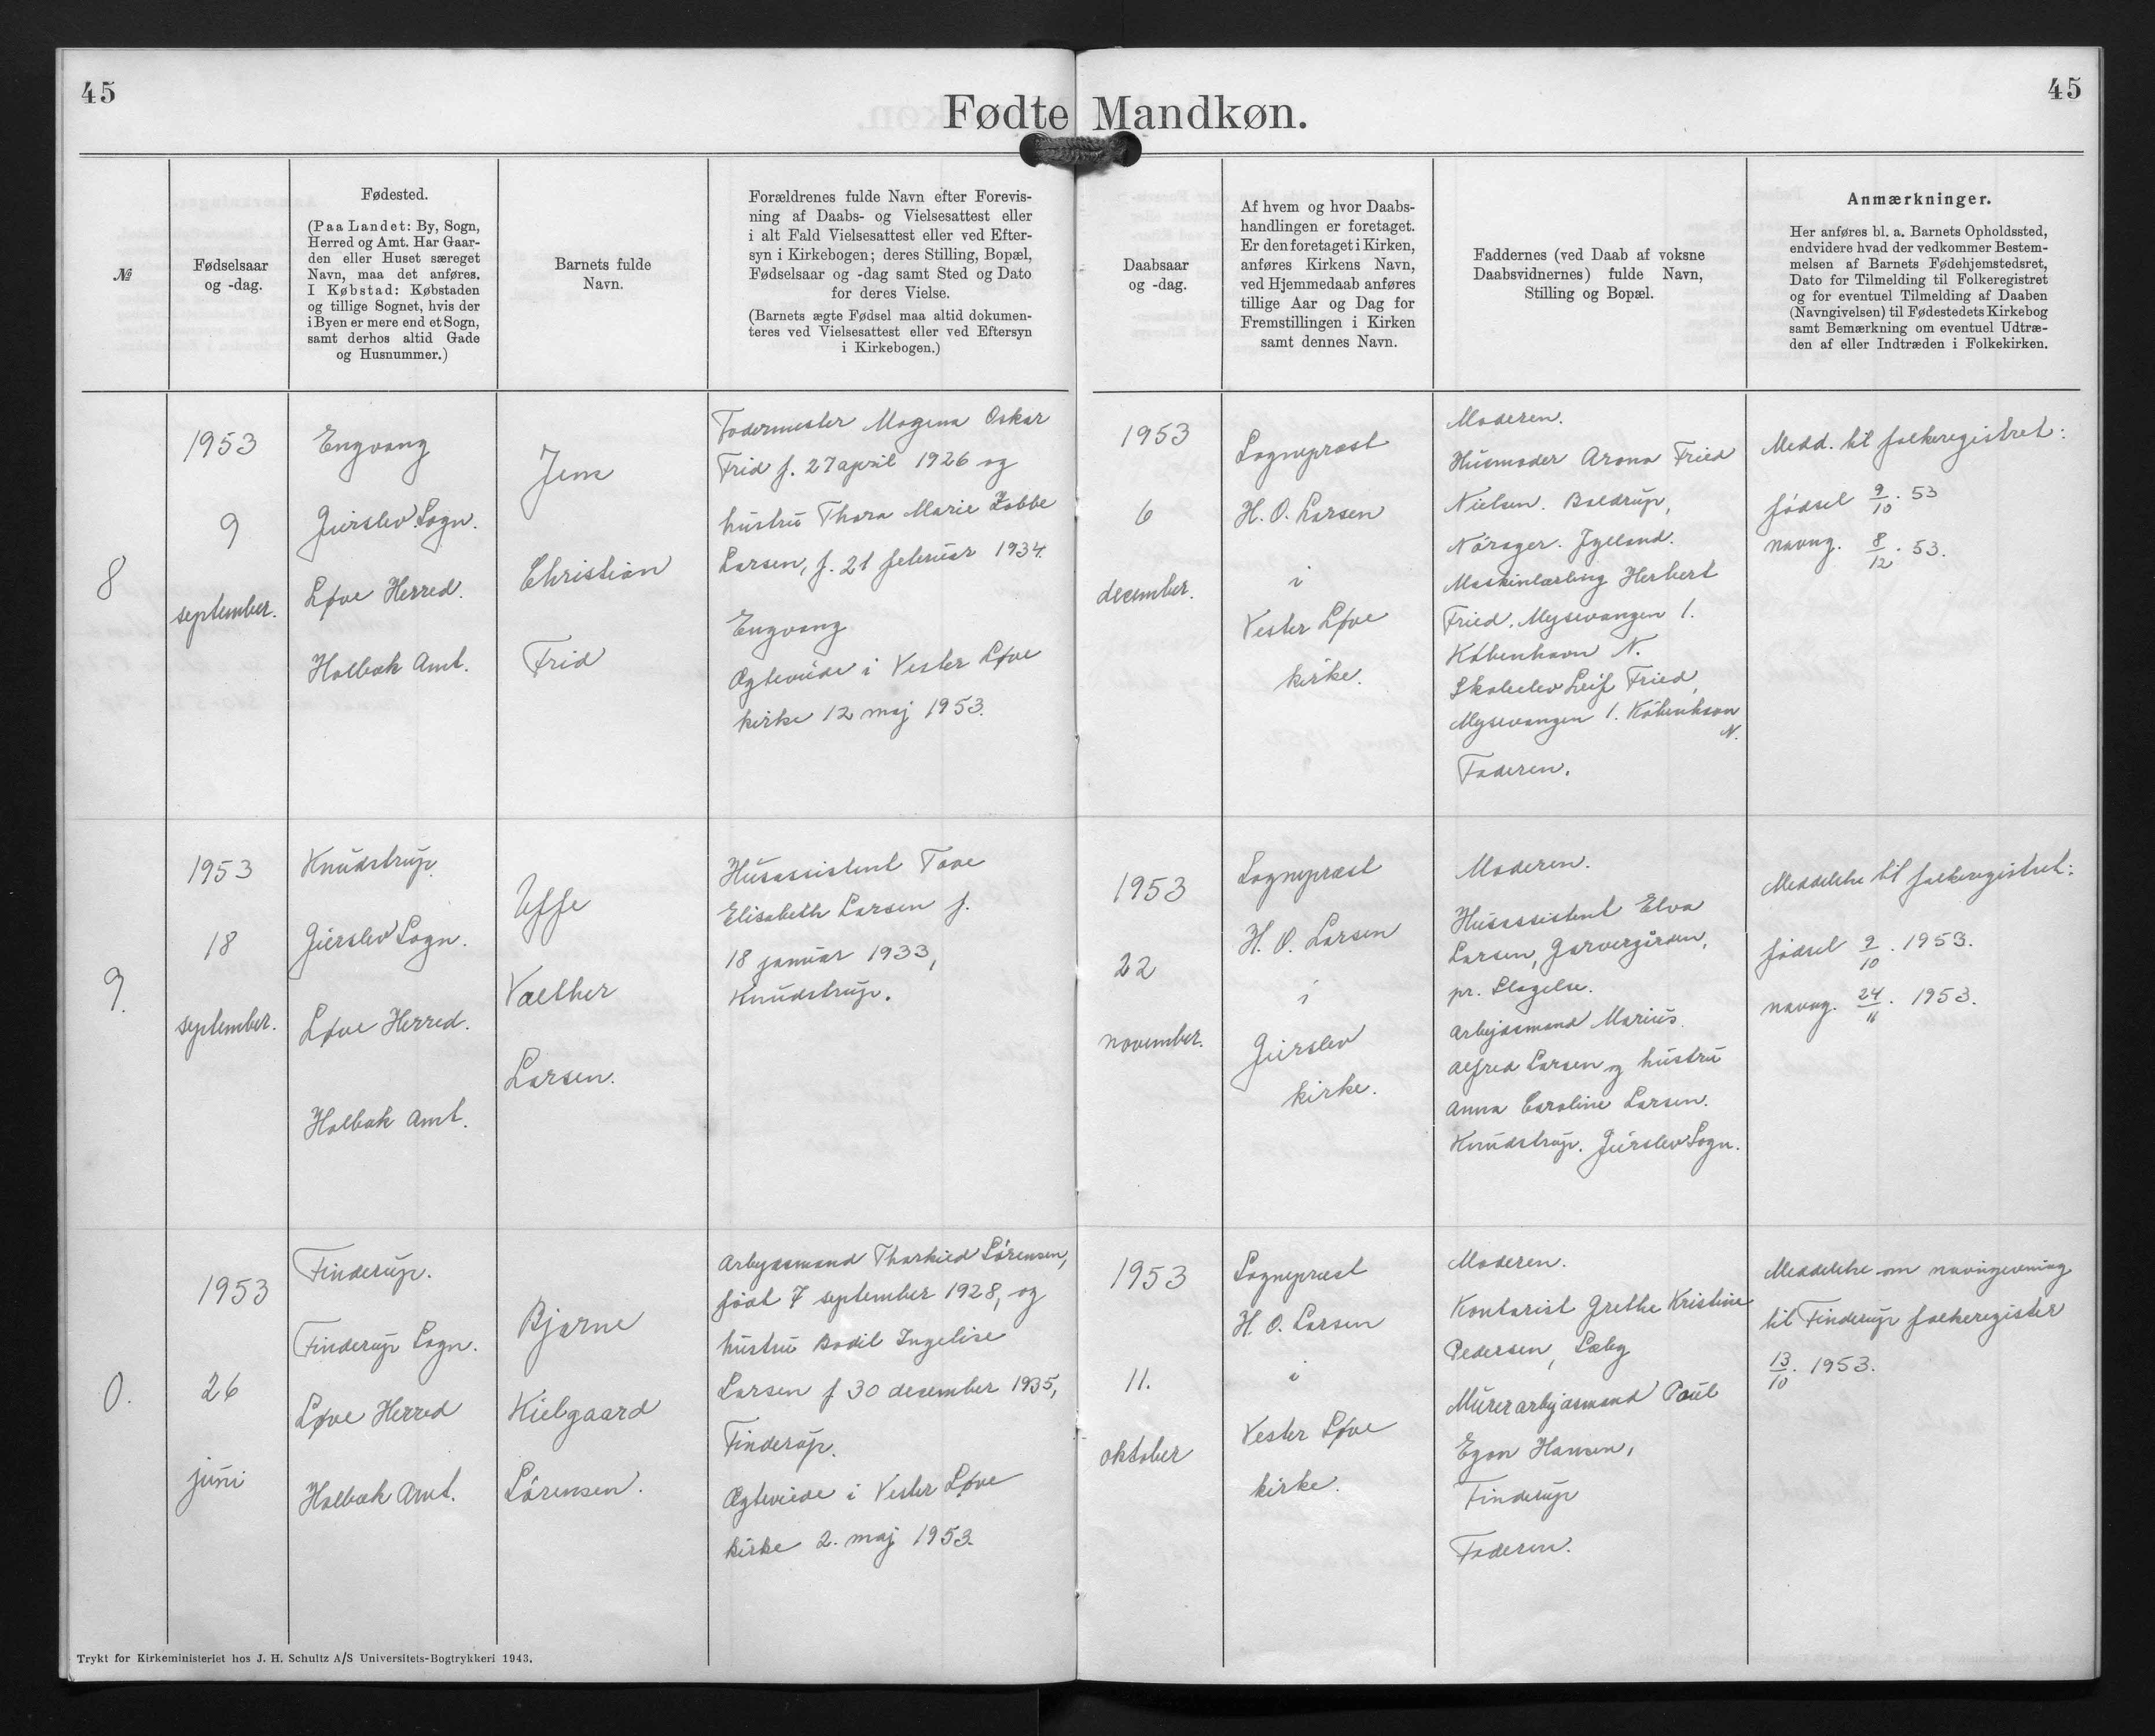 45
45
Fødte Mandkøn.
№
Fødselsaar
og -dag.
Fødested.
(Paa Landet: By, Sogn,
Herred og Amt. Har Gaar-
den eller Huset særeget
Navn, maa det anføres.
I Købstad: Købstaden
og tillige Sognet, hvis der
i Byen er mere end et Sogn,
samt derhos altid Gade
og Husnummer.)
Barnets fulde
Navn.
Forældrenes fulde Navn efter Forevis-
ning af Daabs- og Vielsesattest eller
i alt Fald Vielsesattest eller ved Efter-
syn i Kirkebogen; deres Stilling, Bopæl,
Fødselsaar og -dag samt Sted og Dato
for deres Vielse.
(Barnets ægte Fødsel maa altid dokumen-
teres ved Vielsesattest eller ved Eftersyn
i Kirkebogen.)
Daabsaar
og -dag.
Af hvem og hvor Daabs-
handlingen er foretaget.
Er den foretaget i Kirken,
anføres Kirkens Navn,
ved Hjemmedaab anføres
tillige Aar og Dag for
Fremstillingen i Kirken
samt dennes Navn.
Faddernes (ved Daab af voksne
Daabsvidnernes) fulde Navn,
Stilling og Bopæl.
Anmærkninger.
Her anføres bl. a. Barnets Opholdssted,
endvidere hvad der vedkommer Bestem-
melsen af Barnets Fødehjemstedsret,
Dato for Tilmelding til Folkeregistret
og for eventuel Tilmelding af Daaben
(Navngivelsen) til Fødestedets Kirkebog
samt Bemærkning om eventuel Udtræ-
den af eller Indtræden i Folkekirken.
8
1953
9
september.
Engvang
Gierslev Sogn.
Løve Herred.
Holbæk Amt.
Jens
Christian
Frid
Fodermester Mogens Oskar
Frid f. 27 april 1926 og
hustru Thora Marie
Larsen, f. 21 februar 1934.
Engvang
Ægteviede i Vester Løve
kirke 12 maj 1953.
1953
6
december.
Sognepræst
H. O. Larsen
i
Vester Løve
kirke.
Moderen.
Husmoder Arona Fried
Nielsen. Boldrup,
Nørager. Jylland.
Maskinlærling Herbert
Fried. Mysevangen 1.
København N.
Skoleelev Leif Fried,
Mysevangen 1. København
N.
Faderen.
Medd. til folkeregistret:
fødsel 9/10. 53
navng. 8/12. 53.
9.
1953
18
september.
Knudstrup.
Gierslev Sogn.
Løve Herred.
Holbæk Amt.
Uffe
Valther
Larsen.
Husassistent Tove
Elisabeth Larsen f.
18 januar 1933,
Knudstrup.
1953
22
november.
Sognepræst
H. O. Larsen
i
Gierslev
kirke.
Moderen.
Husassistent Elva
Larsen, Garvergården,
pr. Slagelse.
Arbejdsmand Marius
Alfred Larsen og hustru
Anna Caroline Larsen.
Knudstrup. Gierslev Sogn.
Meddelelse til folkeregistret:
fødsel 9/10. 1953.
navng. 24/11. 1953.
0.
1953
26
juni
Finderup.
Finderup Sogn.
Løve Herred
Holbæk Amt.
Bjarne
Kielgaard
Sørensen.
Arbejdsmand Thorkild Sørensen,
født 7 september 1928, og
hustru Bodil Ingelise
Larsen f. 30 december 1935,
Finderup.
Ægteviede i Vester Løve
kirke 2. maj 1953.
1953
11.
oktober
Sognepræst
H. O. Larsen
i
Vester Løve
kirke.
Moderen.
Kontorist Grethe Kristine
Pedersen, Sæby
Murerarbejdsmand Poul
Egon Hansen,
Finderup
Faderen.
Meddelelse om navngivning
til Finderup folkeregister
13/10. 1953.
Trykt for Kirkeministeriet hos J. H. Schultz A/S Universitets-Bogtrykkeri 1943.